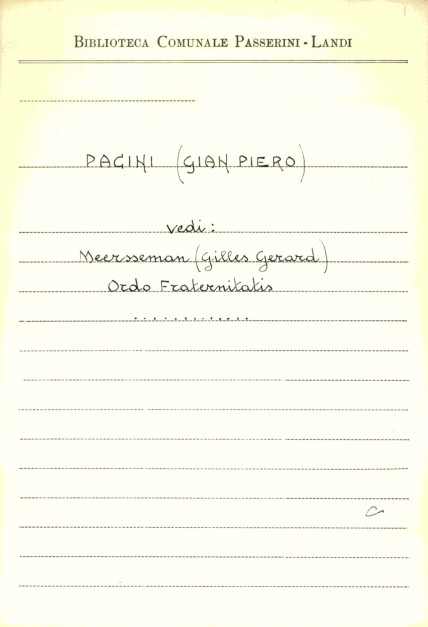 BIBLIOTECA COMUNALE PASSERINI - LANDI
PACINI (GIAN PIERO)
vedi:
Meersseman (Gilles Gerard)
Ordo Fraternitatis
.............
C